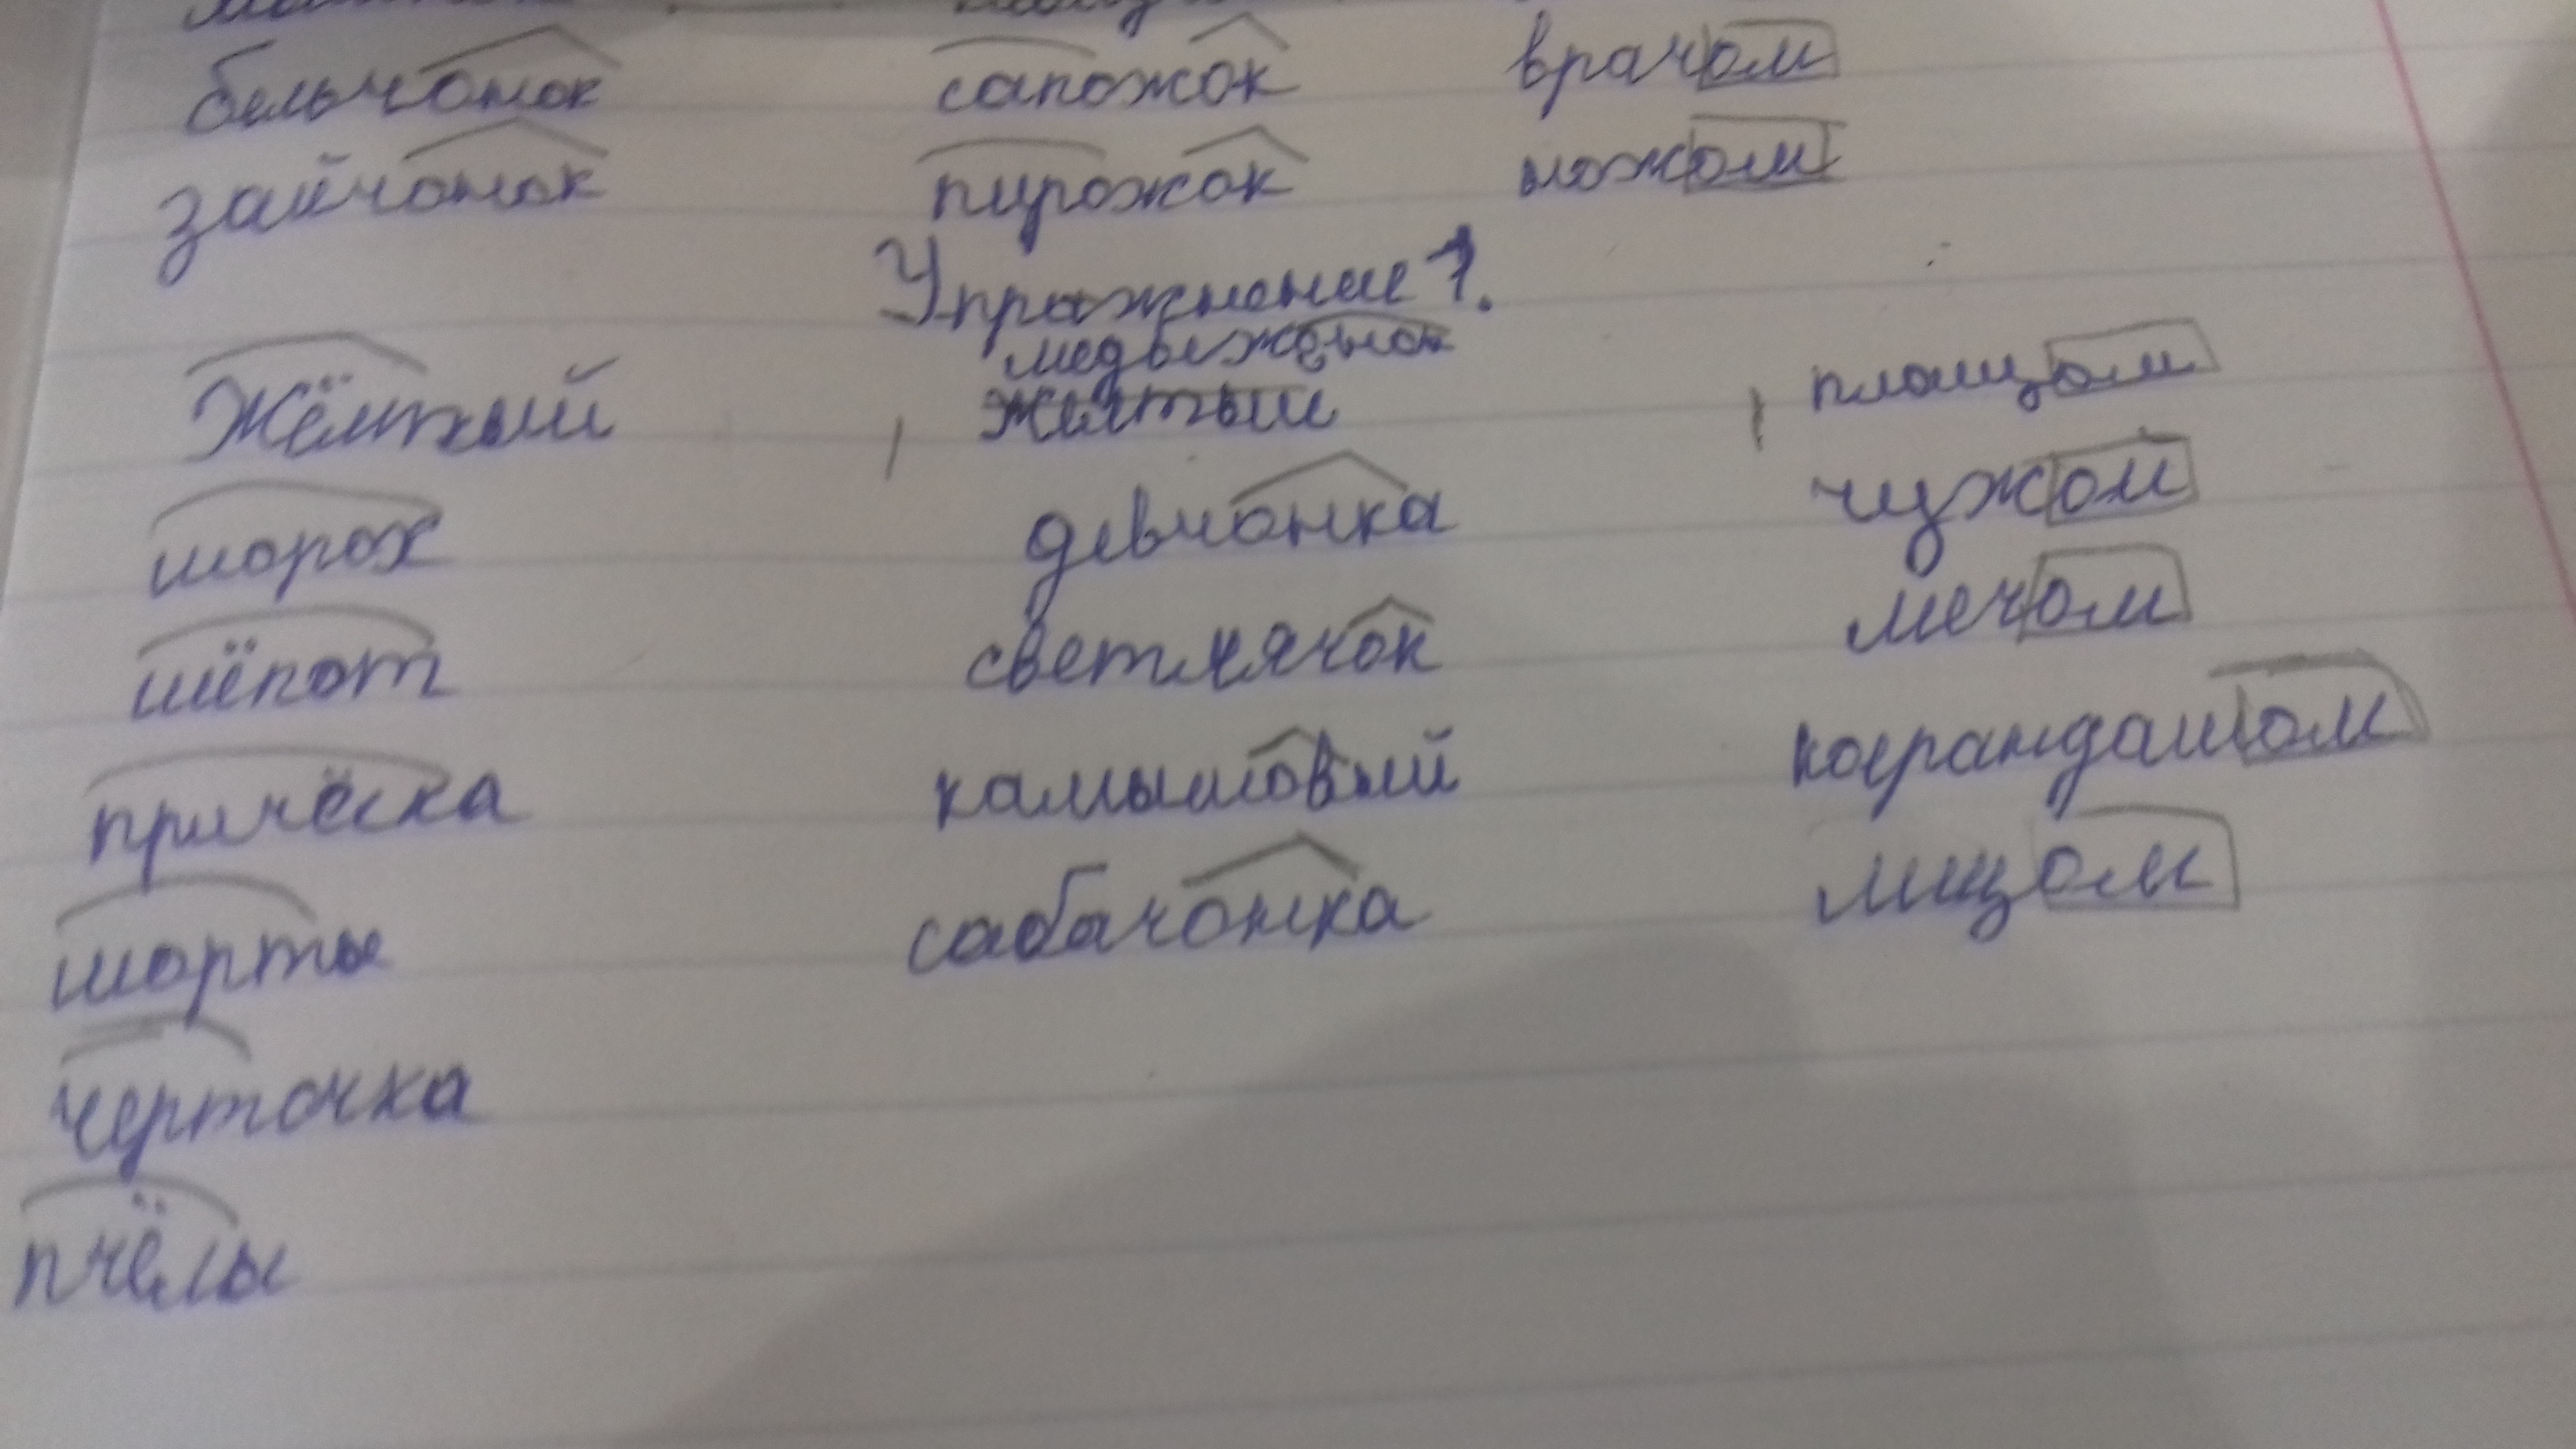 бельчонок сапожок врачом
зайчонок пирожок ножом
Упражнение 1.
медвежонок
Жёлтый желтый плащом
шорох девчонка чужой
шёпот светлячок мечом
причёска камышовый карандашом
шорты сабачонка лицом
черточка
пчёлы